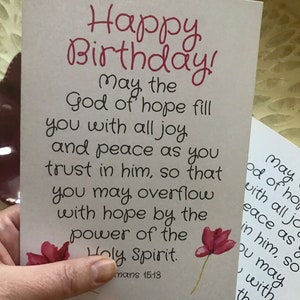 Happy
Birthday!
May the
God of hope fill
you with all joy
and peace as you
trust in him, so that
you may overflow
with hope by the
power of the
Holy Spirit.
mans 15:13
May
God of hop
you with a
and peace a
trust in him,
you may
with ho
power
Holy